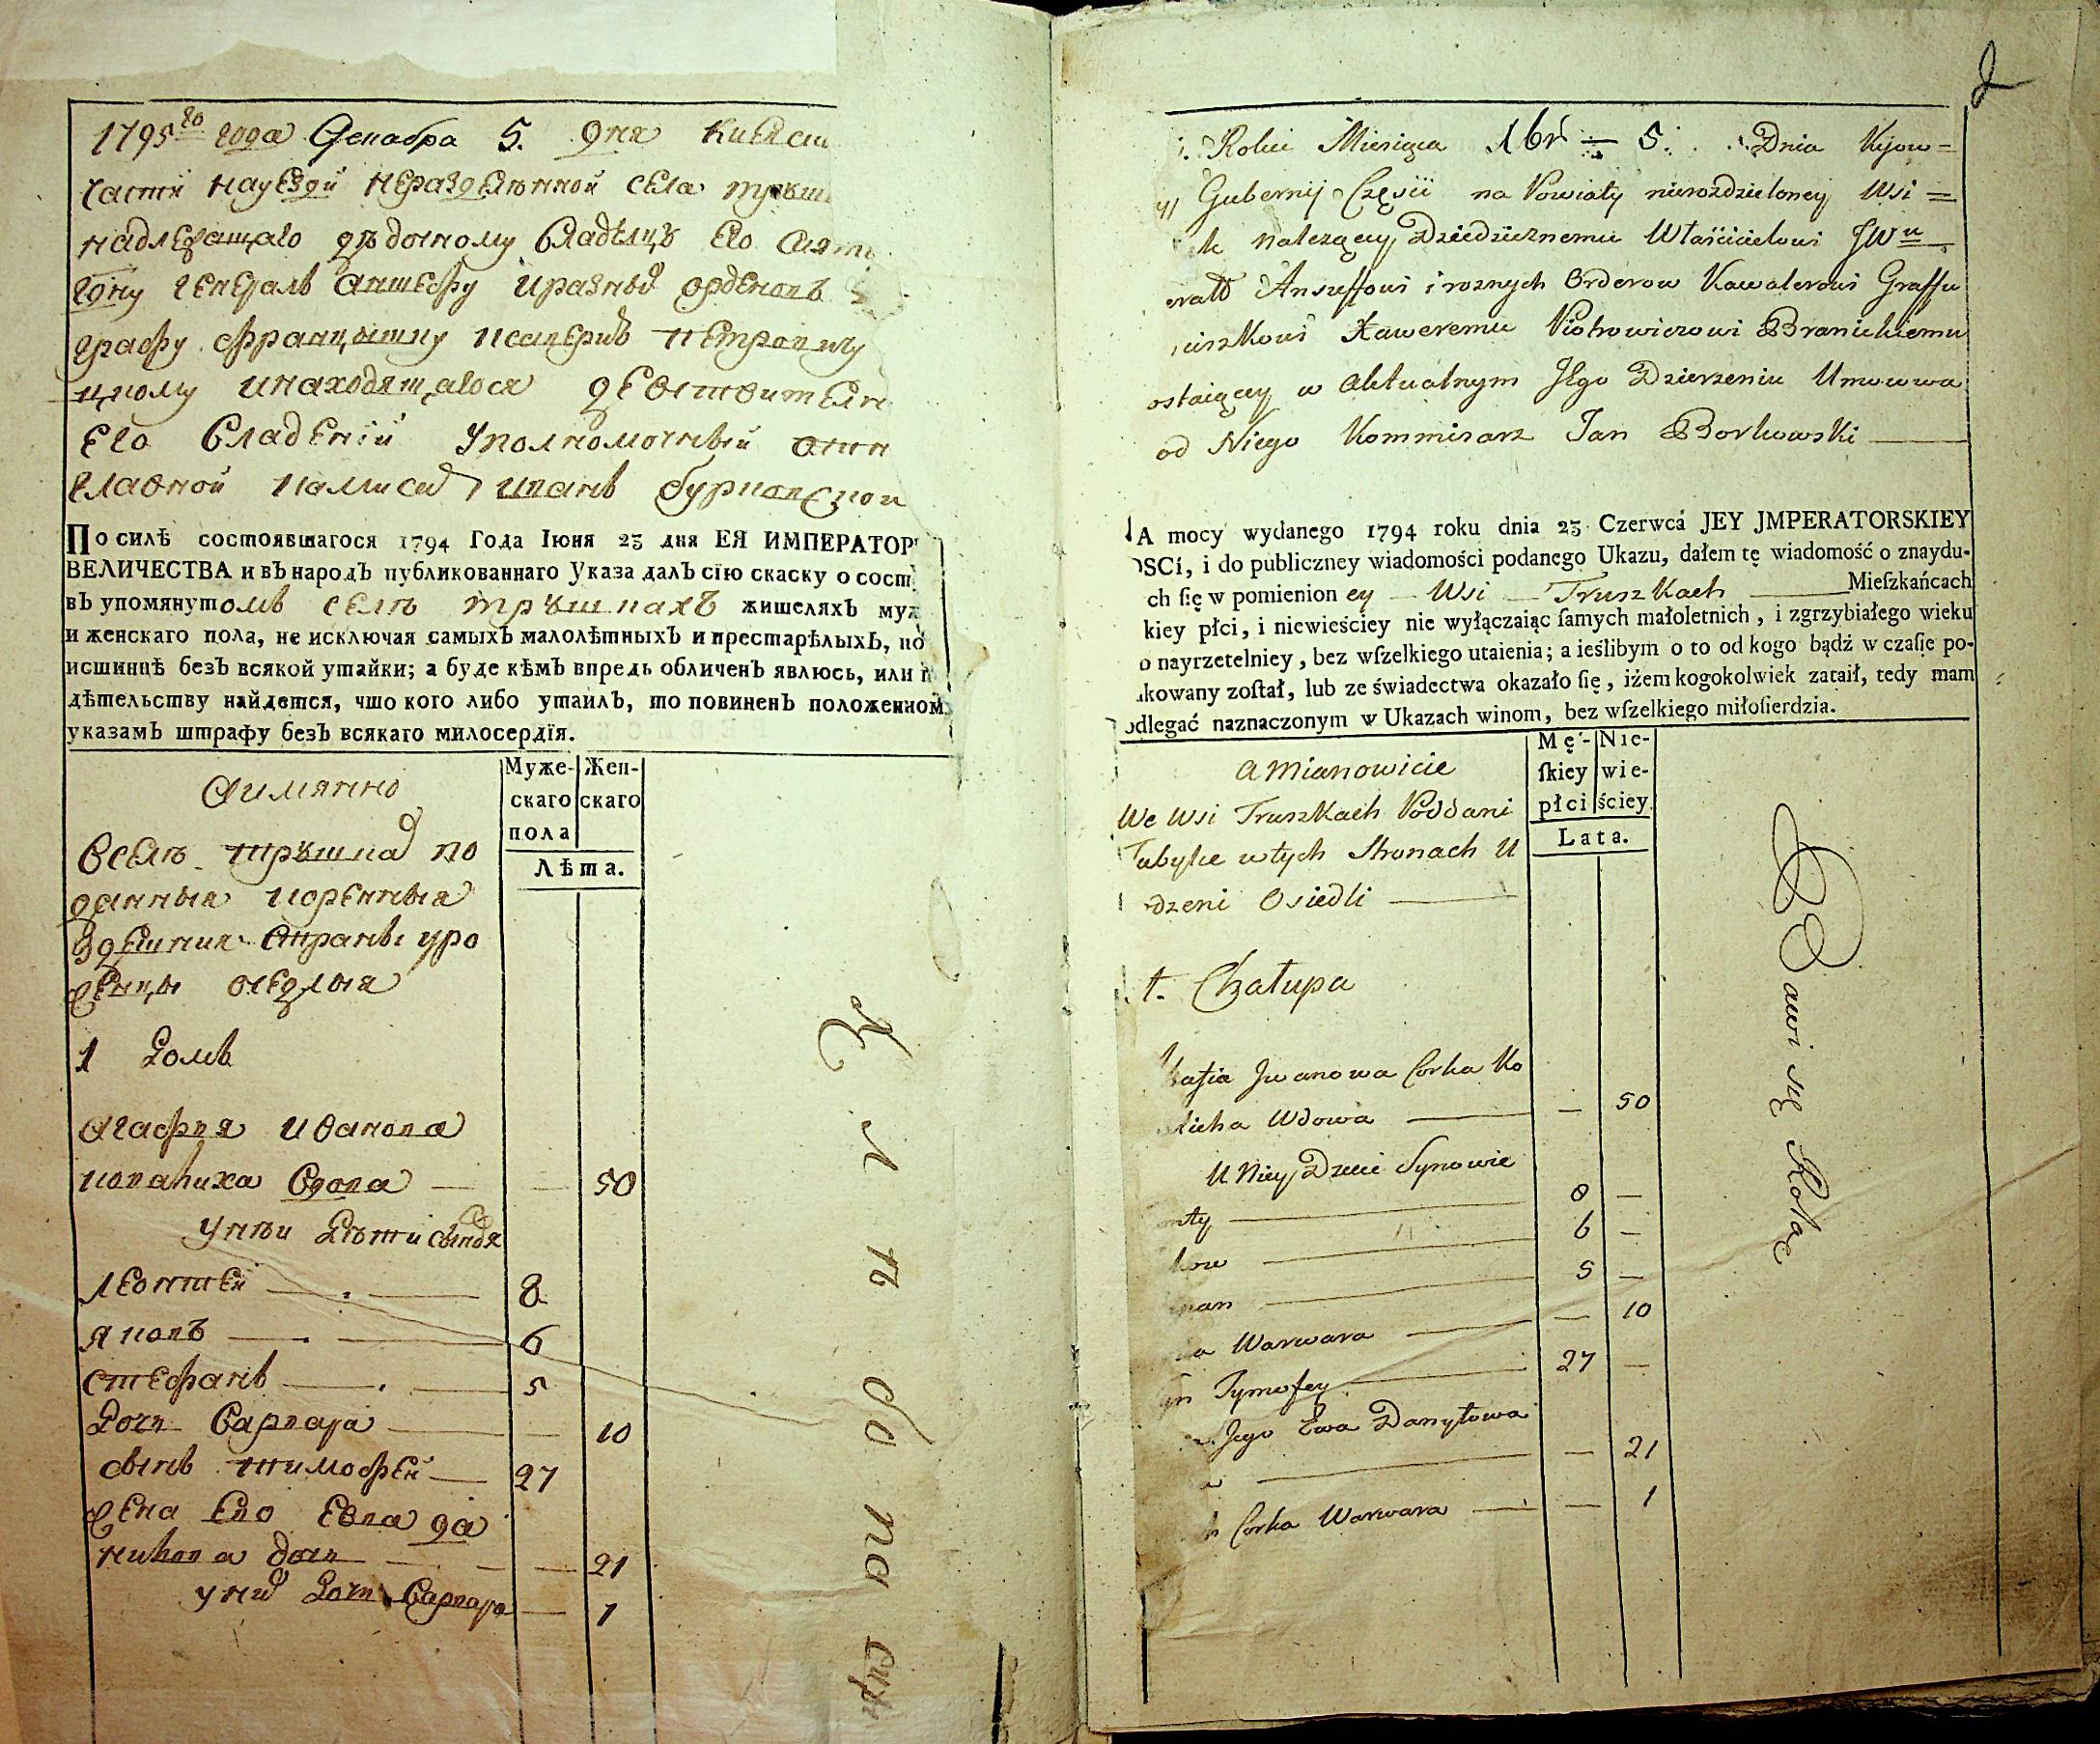 1795го года Декабря 5. дня Киевск
части науезди неразделенной села трушк
надлежащаго вотчинному владелцу его Сият
гдну генералъ аншефу и разныхъ орденовъ
графу Францишку Ксаверию Петровичу
цкому инаходящагося действителн
его владении уполномочный отн
главной комисар иванъ бурковскои
По силѣ состоявшагося 1794 Года Іюня 23 дня ЕЯ ИМПЕРАТОР
ВЕЛИЧЕСТВА и въ народъ публикованнаго Указа далъ сїю скаску о сост
въ упомянутомъ селѣ трушкахъ жителяхъ муж
и женскаго пола, не исключая самыхъ малолѣтныхъ и престарѣлыхъ, по
истиннѣ безъ всякой утайки; а буде кѣмъ впредь обличенъ явлюсь, или п
дѣтельству найдется, что кого либо утаилъ, то повиненъ положенном
указамъ штрафу безъ всякаго милосердїя.
Аимянно
Муже- Жен-
скаго скаго
пола
Лѣта.
Вселѣ трушках по
данныя коренныя
здешния страны уро
женцы оседлыя
1 домъ
Агафия Иванова
ковалиха вдова — — 50
унѣи дѣти сыновя
Леонтеи — 8
Яковъ — 6
Стефанъ — 5
дочь Варвара — — 10
сынъ тимофей — 27
жена ево Евва да
нилова дочь — — 21
уних дочь Варвара — 1
2
Roku Miesiąca Xbr — 5. Dnia Kijow=
Gubernij Częsci na Powiaty nierozdzieloney Wsi =
k nalezącey Dziedzicznemu Właścicielowi JWu
erałł Anszeffowi i roznych Orderow Kawalerowi Graffu
ciszkowi Xaweremu Piotrowiczowi Branickiemu
ostaiącey w Aktualnym Jego Dzierzeniu Umocowa
od Niego Kommisarz Jan Borkowski —
A mocy wydanego 1794 roku dnia 23 Czerwcá JEY JMPERATORSKIEY
OSCi, i do publiczney wiadomości podanego Ukazu, dałem tę wiadomość o znaydu-
ch ſię w pomienion ey — Wsi — Truszkach — Mieſzkańcach
kiey płci, i niewieściey nie wyłączaiąc ſamych małoletnich, i zgrzybiałego wieku
o nayrzetelniey, bez wſzelkiego utaienia; a ieślibym o to od kogo bądź w czaſie po-
kowany zoſtał, lub ze świadectwa okazało ſię, iżem kogokolwiek zataił, tedy mam
odlegać naznaczonym w Ukazach winom, bez wſzelkiego miłoſierdzia.
A Mianowicie
Mę- Nie-
ſkiey wie-
płci ściey.
Lata.
We Wsi Truszkach Poddani
Tubylce w tych Stronach U
dzeni Osiedli —
1. Chałupa
hafia Jwanowa Corka Ko
licha Wdowa — — 50
U Niey Dzieci Synowie
nty — 8 —
kow — 6 —
phan — 5 —
a Warwara — — 10
yn Tymofey — 27 —
Jego Ewa Danyłowa
a — — 21
h Corka Warwara — — 1
Bawi się Rolą